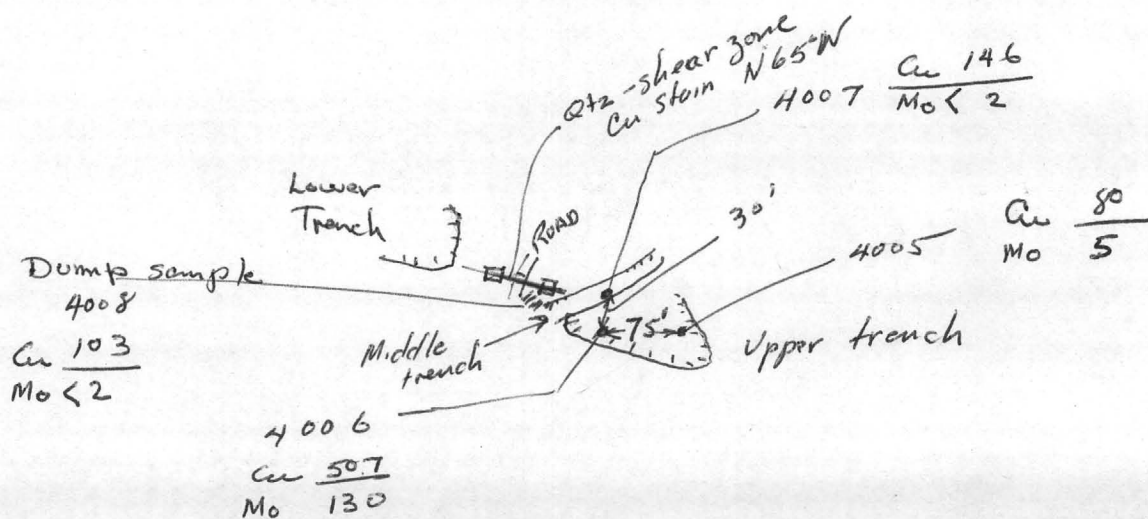 Qtz-shear zone
Cu stain N65°W
4007 Cu 146
Mo < 2
Lower
Trench
ROAD
30'
4005 Cu 80
Mo 5
Dump sample
4008
Cu 103
Mo < 2
Middle
trench
75'
Upper trench
4006
Cu 50.7
Mo 130